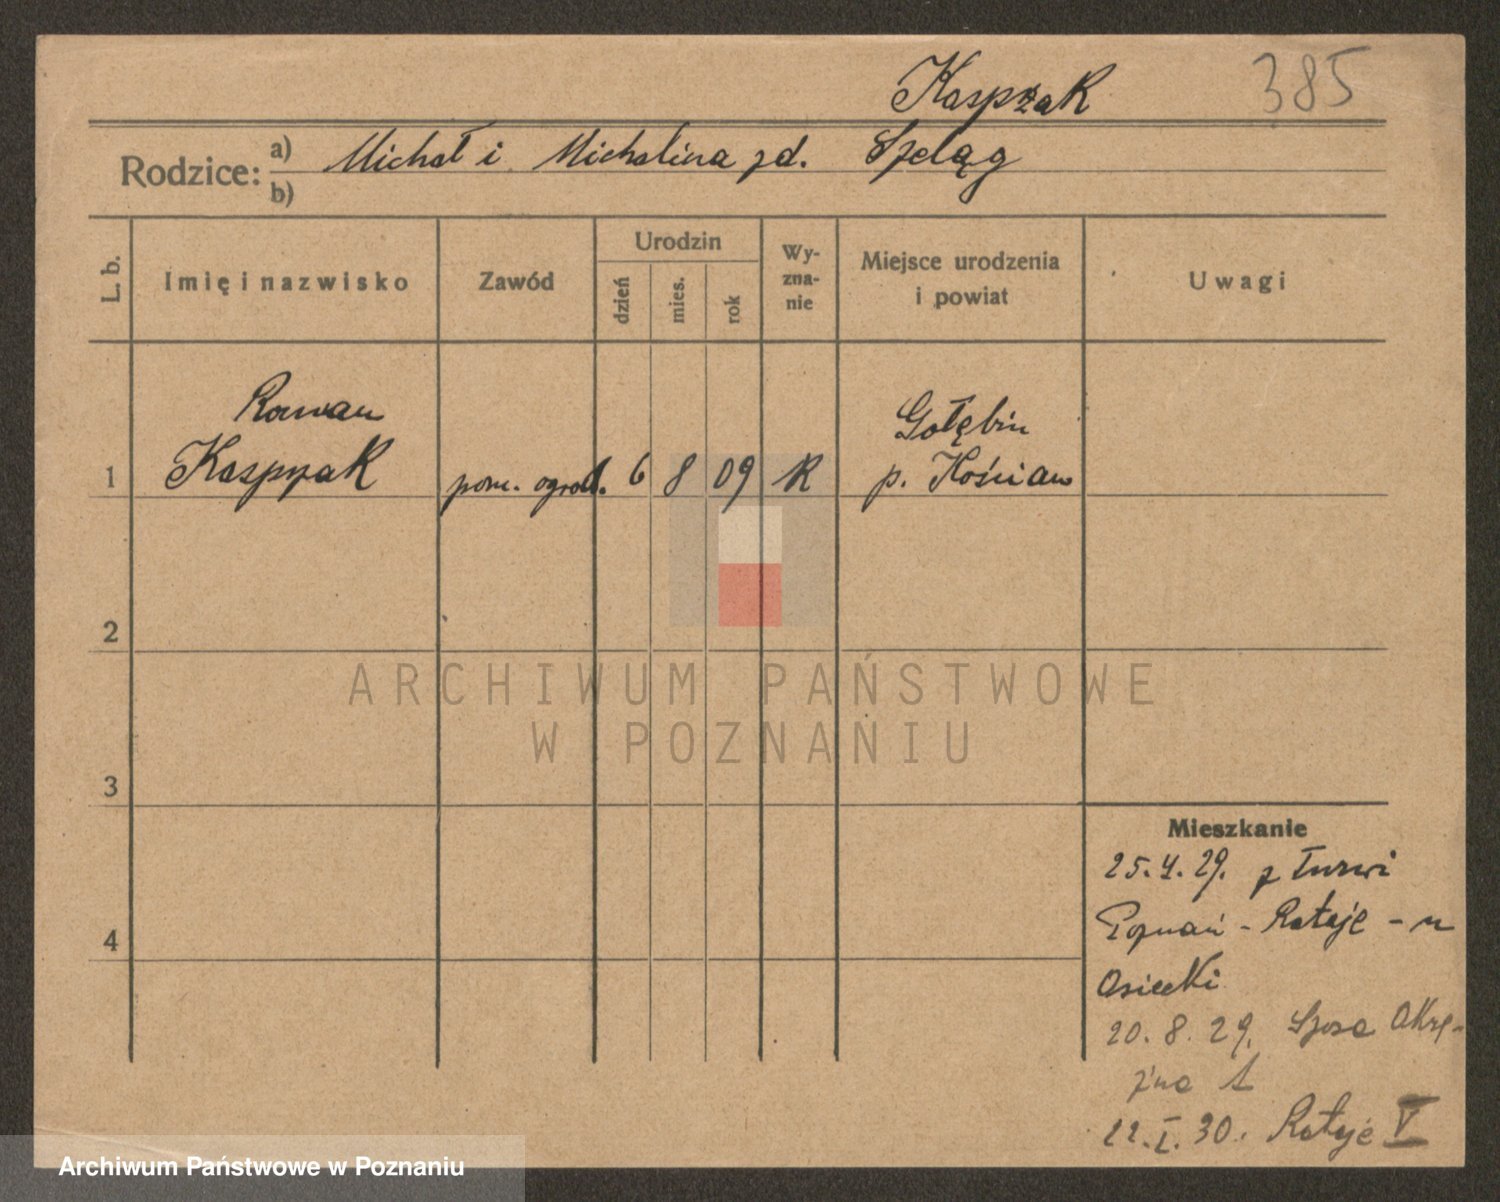 Kasprzak 385
Rodzice: a) Michał i Michalina zd. Szeląg
b)
L. b.
Imię i nazwisko
Zawód
Urodzin
dzień
mies.
rok
Wy-
zna-
nie
Miejsce urodzenia
i powiat
Uwagi
Roman
Kasprzak
1
pom. ogrod. 6 8 09 K
Gołębin
p. Kościan
2
3
4
ARCHIWUM PAŃSTWOWE
W POZNANIU
Mieszkanie
25. 4. 29. z Turwi
Poznań - Rataje - u
Osiecki
20. 8. 29. Szosa Okrę-
żna 1
22. I. 30. Rataje V
Archiwum Państwowe w Poznaniu